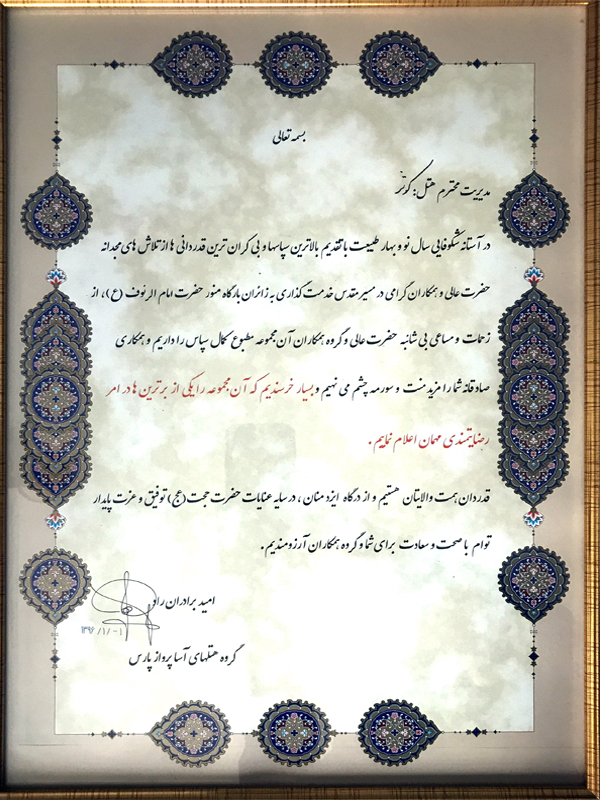 بسمه تعالی
مدیریت محترم هتل: کوثر
در آستانه شکوفایی سال نو و بهار طبیعت با تقدیم بالاترین سپاسها و بی کران ترین قدردانی ها از تلاش های مجدانه
حضرت عالی و همکاران گرامی در مسیر مقدس خدمت گذاری به زائران بارگاه منور حضرت امام الرئوف (ع)، از
زحمات و مساعی بی شائبه حضرت عالی و گروه همکاران آن مجموعه مطبوع کمال سپاس را داریم و همکاری
صادقانه شما را مزید منت و سورمه چشم می نهیم و بسیار خرسندیم که آن مجموعه را یکی از برترین ها در امر
رضایتمندی مهمان اعلام نماییم.
قدردان همت والایتان هستیم و از درگاه ایزد منان، در سایه عنایات حضرت حجت (عج) توفیق و عزت پایدار
توام با صحت و سعادت برای شما و گروه همکاران آرزومندیم.
امید برادران راد
۱۳۹۶/۱/۱۰
گروه هتلهای آسا پرواز پارس